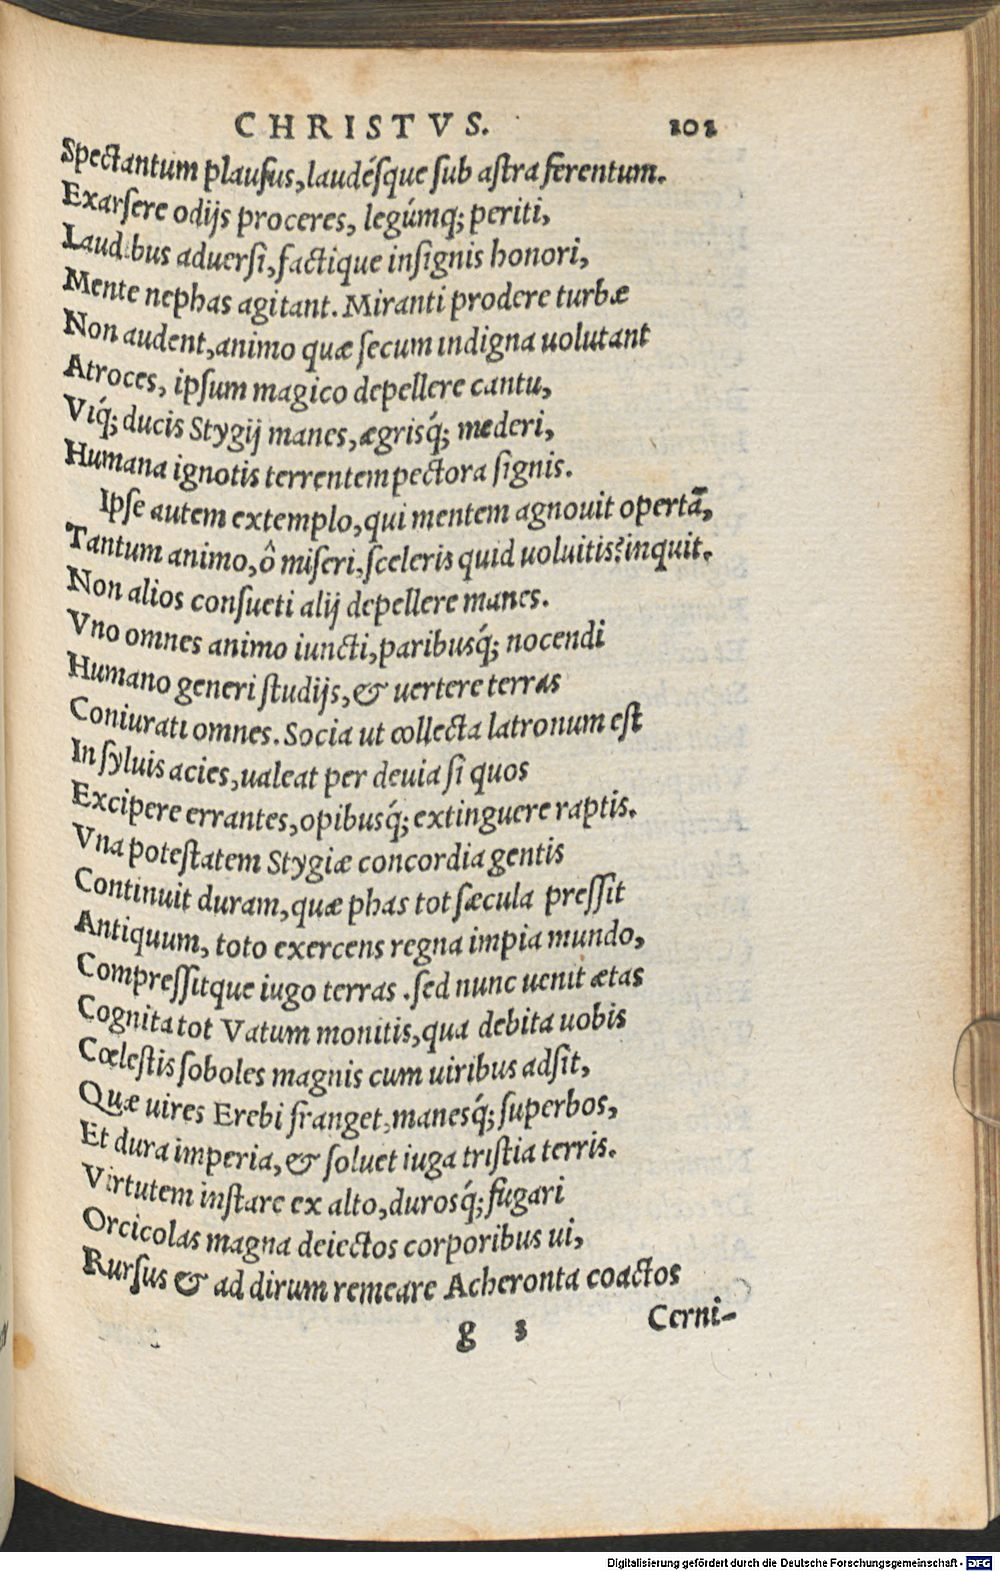 CHRISTVS. 101
Spectantum plausus, laudésque sub astra ferentum.
Exarsere odijs proceres, legúmq; periti,
Laudibus aduersi, factique insignis honori,
Mente nephas agitant. Miranti prodere turbæ
Non audent, animo quæ secum indigna uolutant
Atroces, ipsum magico depellere cantu,
Viq́; ducis Stygij manes, ægrisq́; mederi,
Humana ignotis terrentem pectora signis.
Ipse autem extemplo, qui mentem agnouit opertā,
Tantum animo, ô miseri, sceleris quid uoluitis? inquit.
Non alios consueti alij depellere manes.
Vno omnes animo iuncti, paribusq́; nocendi
Humano generi studijs, & uertere terras
Coniurati omnes. Socia ut collecta latronum est
In syluis acies, ualeat per deuia si quos
Excipere errantes, opibusq́; extinguere raptis.
Vna potestatem Stygiæ concordia gentis
Continuit duram, quæ phas tot sæcula pressit
Antiquum, toto exercens regna impia mundo,
Compressitque iugo terras. sed nunc uenit ætas
Cognita tot Vatum monitis, qua debita uobis
Cœlestis soboles magnis cum uiribus adsit,
Quæ uires Erebi franget, manesq́; superbos,
Et dura imperia, & soluet iuga tristia terris.
Virtutem instare ex alto, durosq́; fugari
Orcicolas magna deiectos corporibus ui,
Rursus & ad dirum remeare Acheronta coactos
g 3 Cerni-
Digitalisierung gefördert durch die Deutsche Forschungsgemeinschaft - DFG